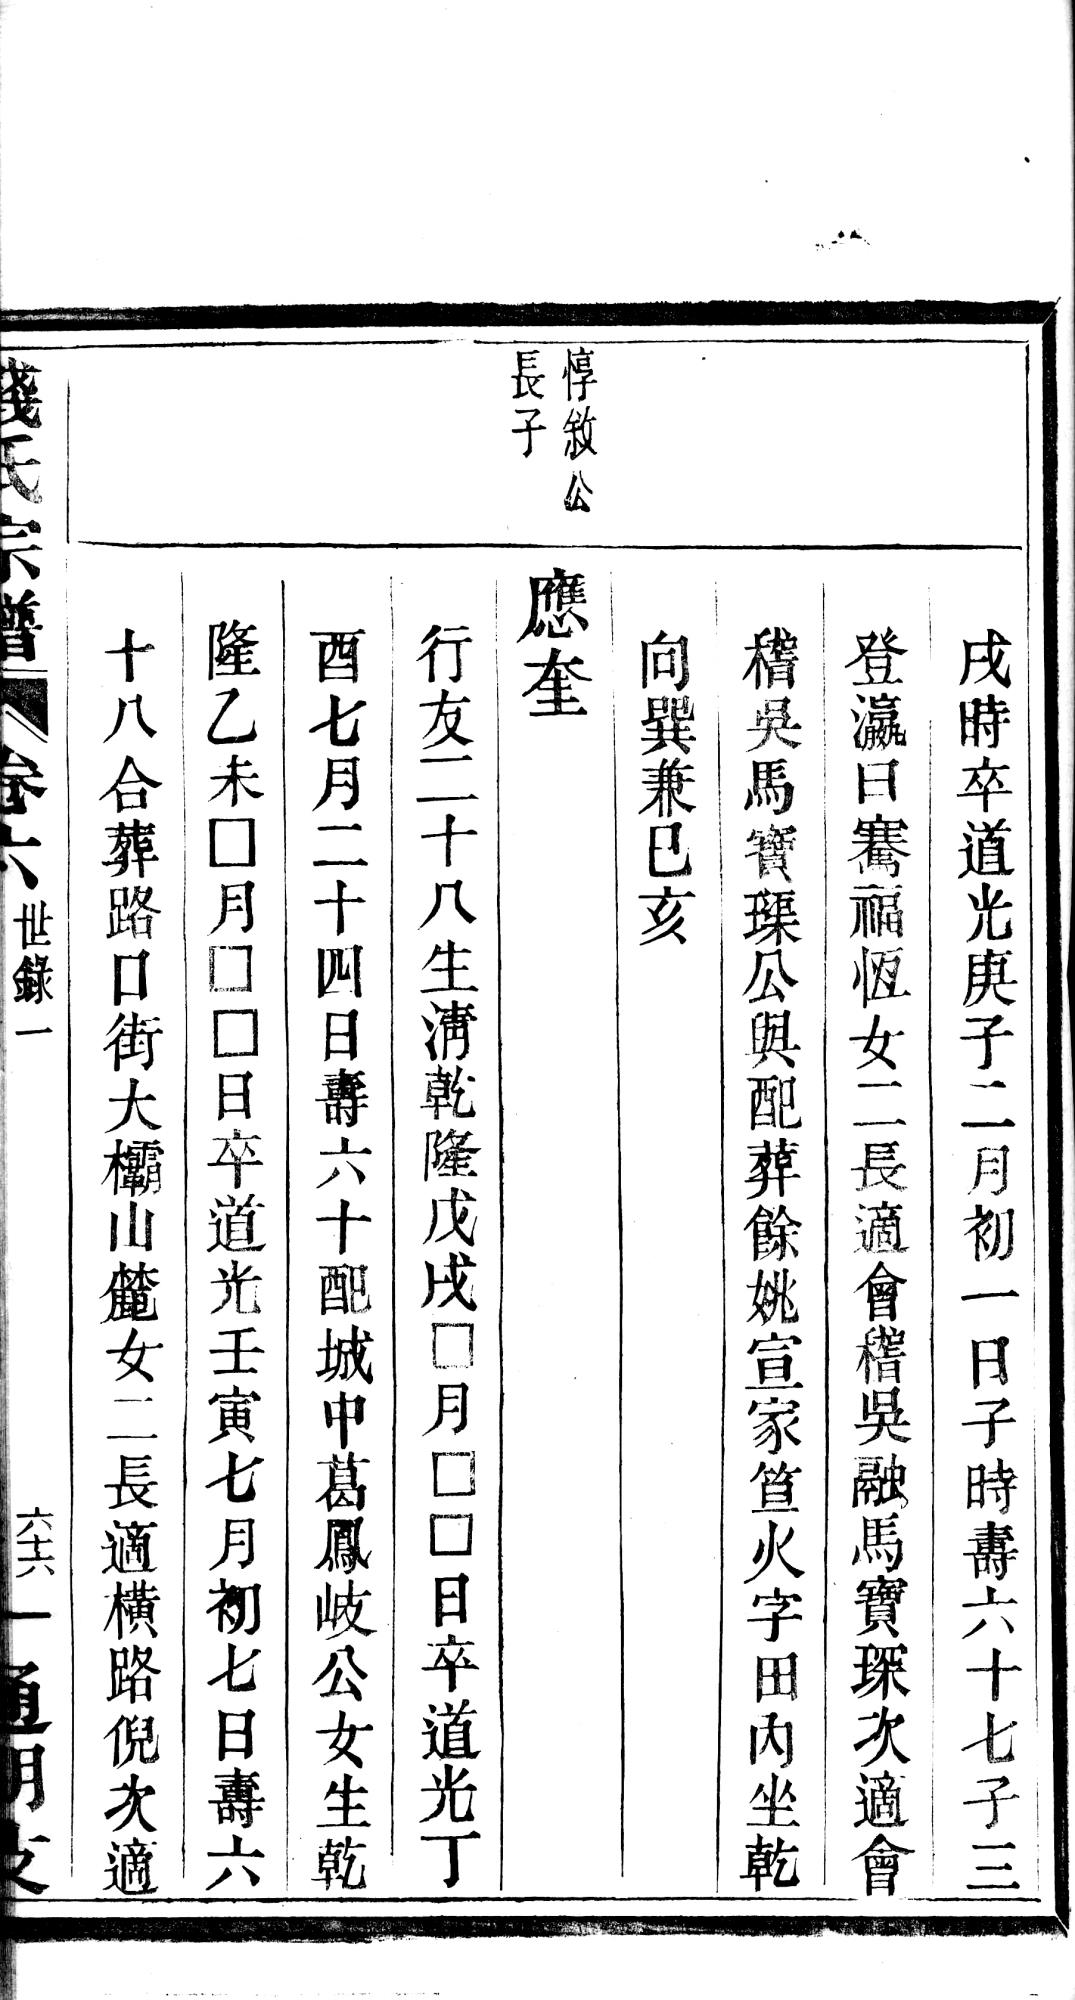 戌時卒道光庚子二月初一日子時壽六十七子三
登瀛曰騫福恆女二長適會稽吳融馬寶琛次適會
稽吳馬寶璖公與配葬餘姚宣家笪火字田內坐乾
向巽兼巳亥
惇敘公
長子
應奎
行友二十八生清乾隆戊戌□月□□日卒道光丁
酉七月二十四日壽六十配城中葛鳳岐公女生乾
隆乙未□月□□日卒道光壬寅七月初七日壽六
十八合葬路口街大欛山麓女二長適橫路倪次適
錢氏宗譜 卷六 世錄一 六十六 一 通明支